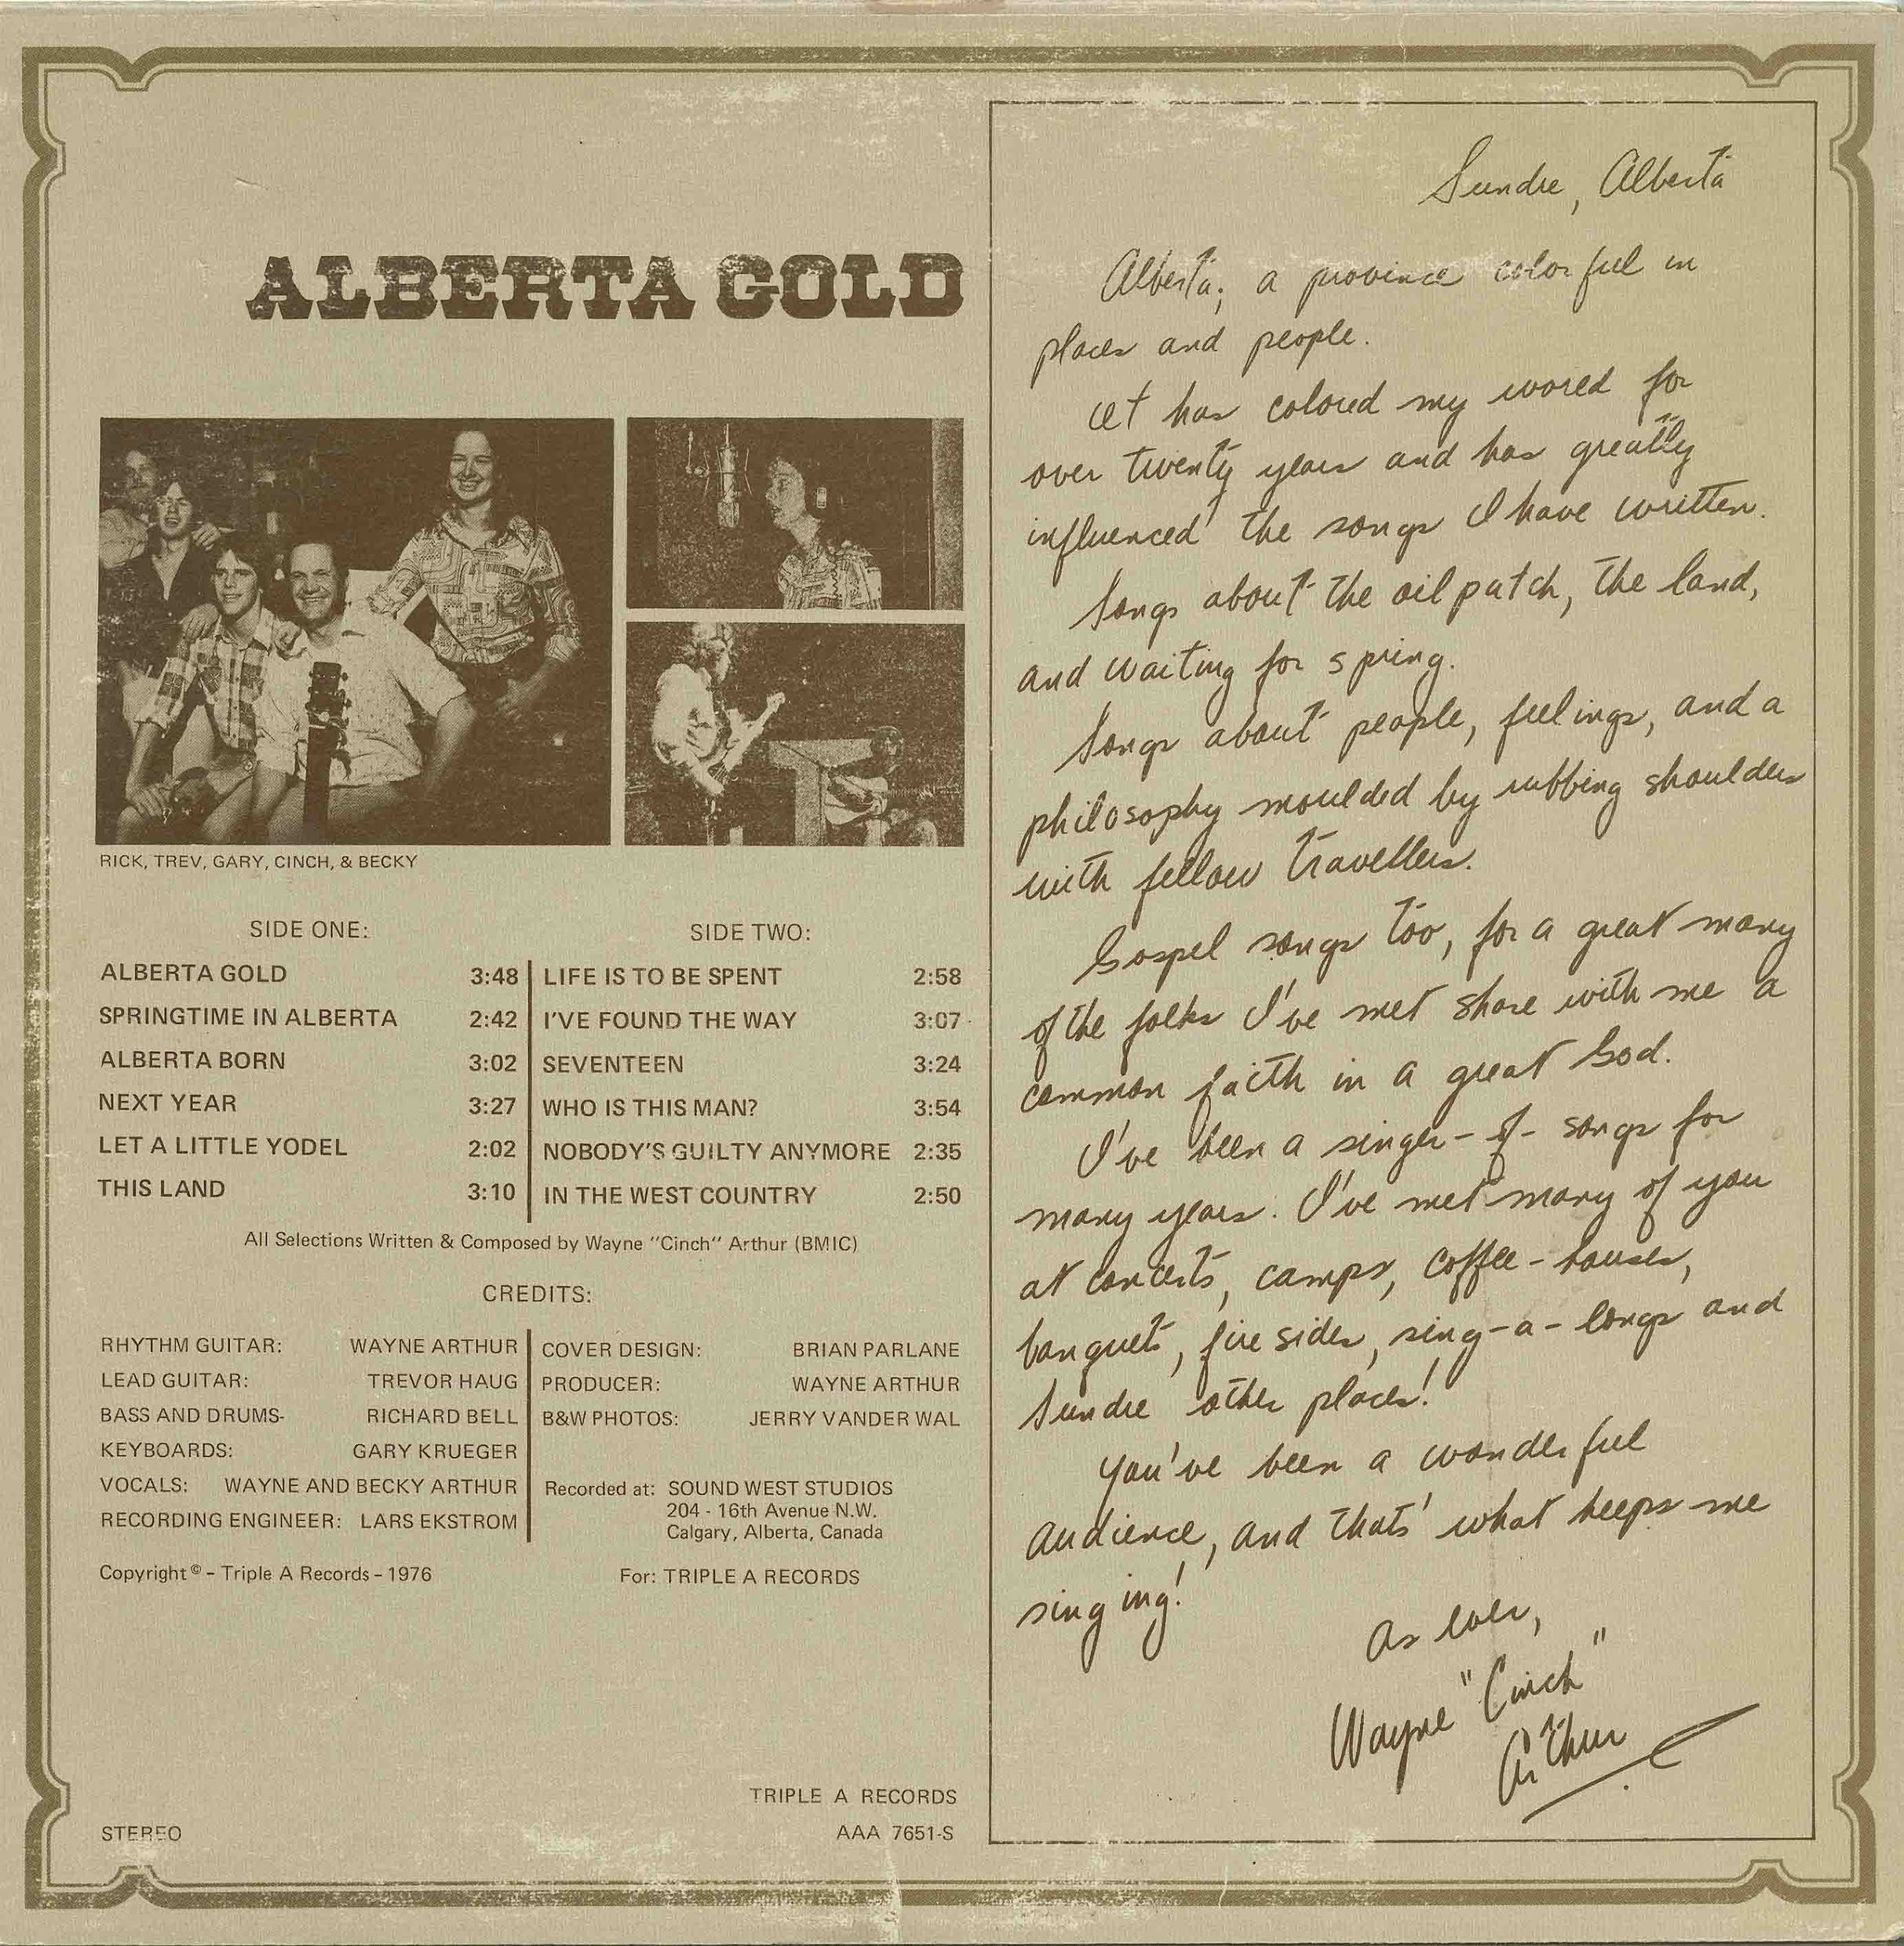 ALBERTA GOLD
RICK, TREV, GARY, CINCH, & BECKY
SIDE ONE:
ALBERTA GOLD 3:48
SPRINGTIME IN ALBERTA 2:42
ALBERTA BORN 3:02
NEXT YEAR 3:27
LET A LITTLE YODEL 2:02
THIS LAND 3:10
SIDE TWO:
LIFE IS TO BE SPENT 2:58
I'VE FOUND THE WAY 3:07
SEVENTEEN 3:24
WHO IS THIS MAN? 3:54
NOBODY'S GUILTY ANYMORE 2:35
IN THE WEST COUNTRY 2:50
All Selections Written & Composed by Wayne "Cinch" Arthur (BMIC)
CREDITS:
RHYTHM GUITAR: WAYNE ARTHUR
LEAD GUITAR: TREVOR HAUG
BASS AND DRUMS- RICHARD BELL
KEYBOARDS: GARY KRUEGER
VOCALS: WAYNE AND BECKY ARTHUR
RECORDING ENGINEER: LARS EKSTROM
COVER DESIGN: BRIAN PARLANE
PRODUCER: WAYNE ARTHUR
B&W PHOTOS: JERRY VANDER WAL
Recorded at: SOUND WEST STUDIOS
204 - 16th Avenue N.W.
Calgary, Alberta, Canada
Copyright © - Triple A Records - 1976
For: TRIPLE A RECORDS
TRIPLE A RECORDS
STEREO
AAA 7651-S
Sundre, Alberta
Alberta; a province colorful in
places and people.
It has colored my world for
over twenty years and has greatly
influenced the songs I have written.
Songs about the oil patch, the land,
and waiting for spring.
Songs about people, feelings, and a
philosophy moulded by rubbing shoulders
with fellow travellers.
Gospel songs too, for a great many
of the folks I've met share with me a
common faith in a great God.
I've been a singer-of-songs for
many years. I've met many of you
at concerts, camps, coffee-houses,
banquets, firesides, sing-a-longs and
Sundre other places!
You've been a wonderful
audience, and thats' what keeps me
singing!
As ever,
Wayne "Cinch"
Arthur